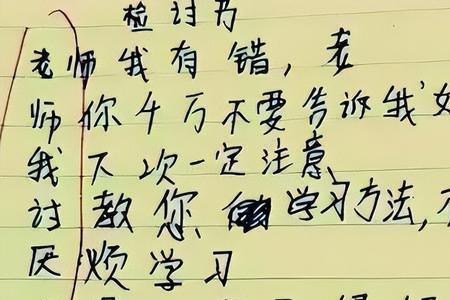 检讨书
老师我有错，老
师你千万不要告诉我
我下次一定注意
讨教您、学习方法，
厌烦学习